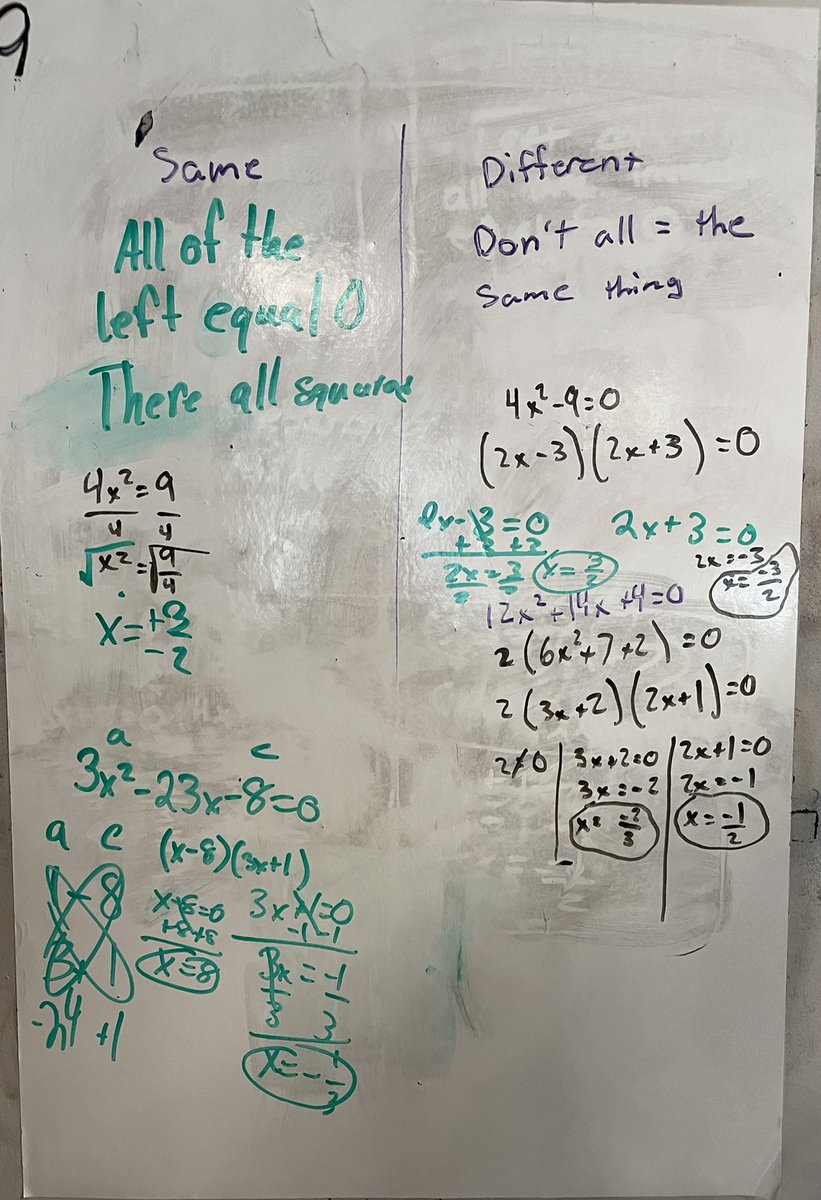 9
Same
All of the
left equal 0
There all squares
4x²=9
4 4
√x²=√9/4
x=+3
-2
a c
3x²-23x-8=0
a c
(x-8)(3x+1)
1 -8
3x 1
-24 +1
x-8=0
+8+8
x=8
3x+1=0
-1-1
3x=-1
3 3
x=-1/3
Different
Don't all = the
same thing
4x²-9=0
(2x-3)(2x+3)=0
2x-3=0
+3 +3
2x=3
2 2
x=3/2
2x+3=0
2x=-3
x=-3/2
12x²+14x+4=0
2(6x²+7+2)=0
2(3x+2)(2x+1)=0
2≠0
3x+2=0
3x=-2
x=-2/3
2x+1=0
2x=-1
x=-1/2